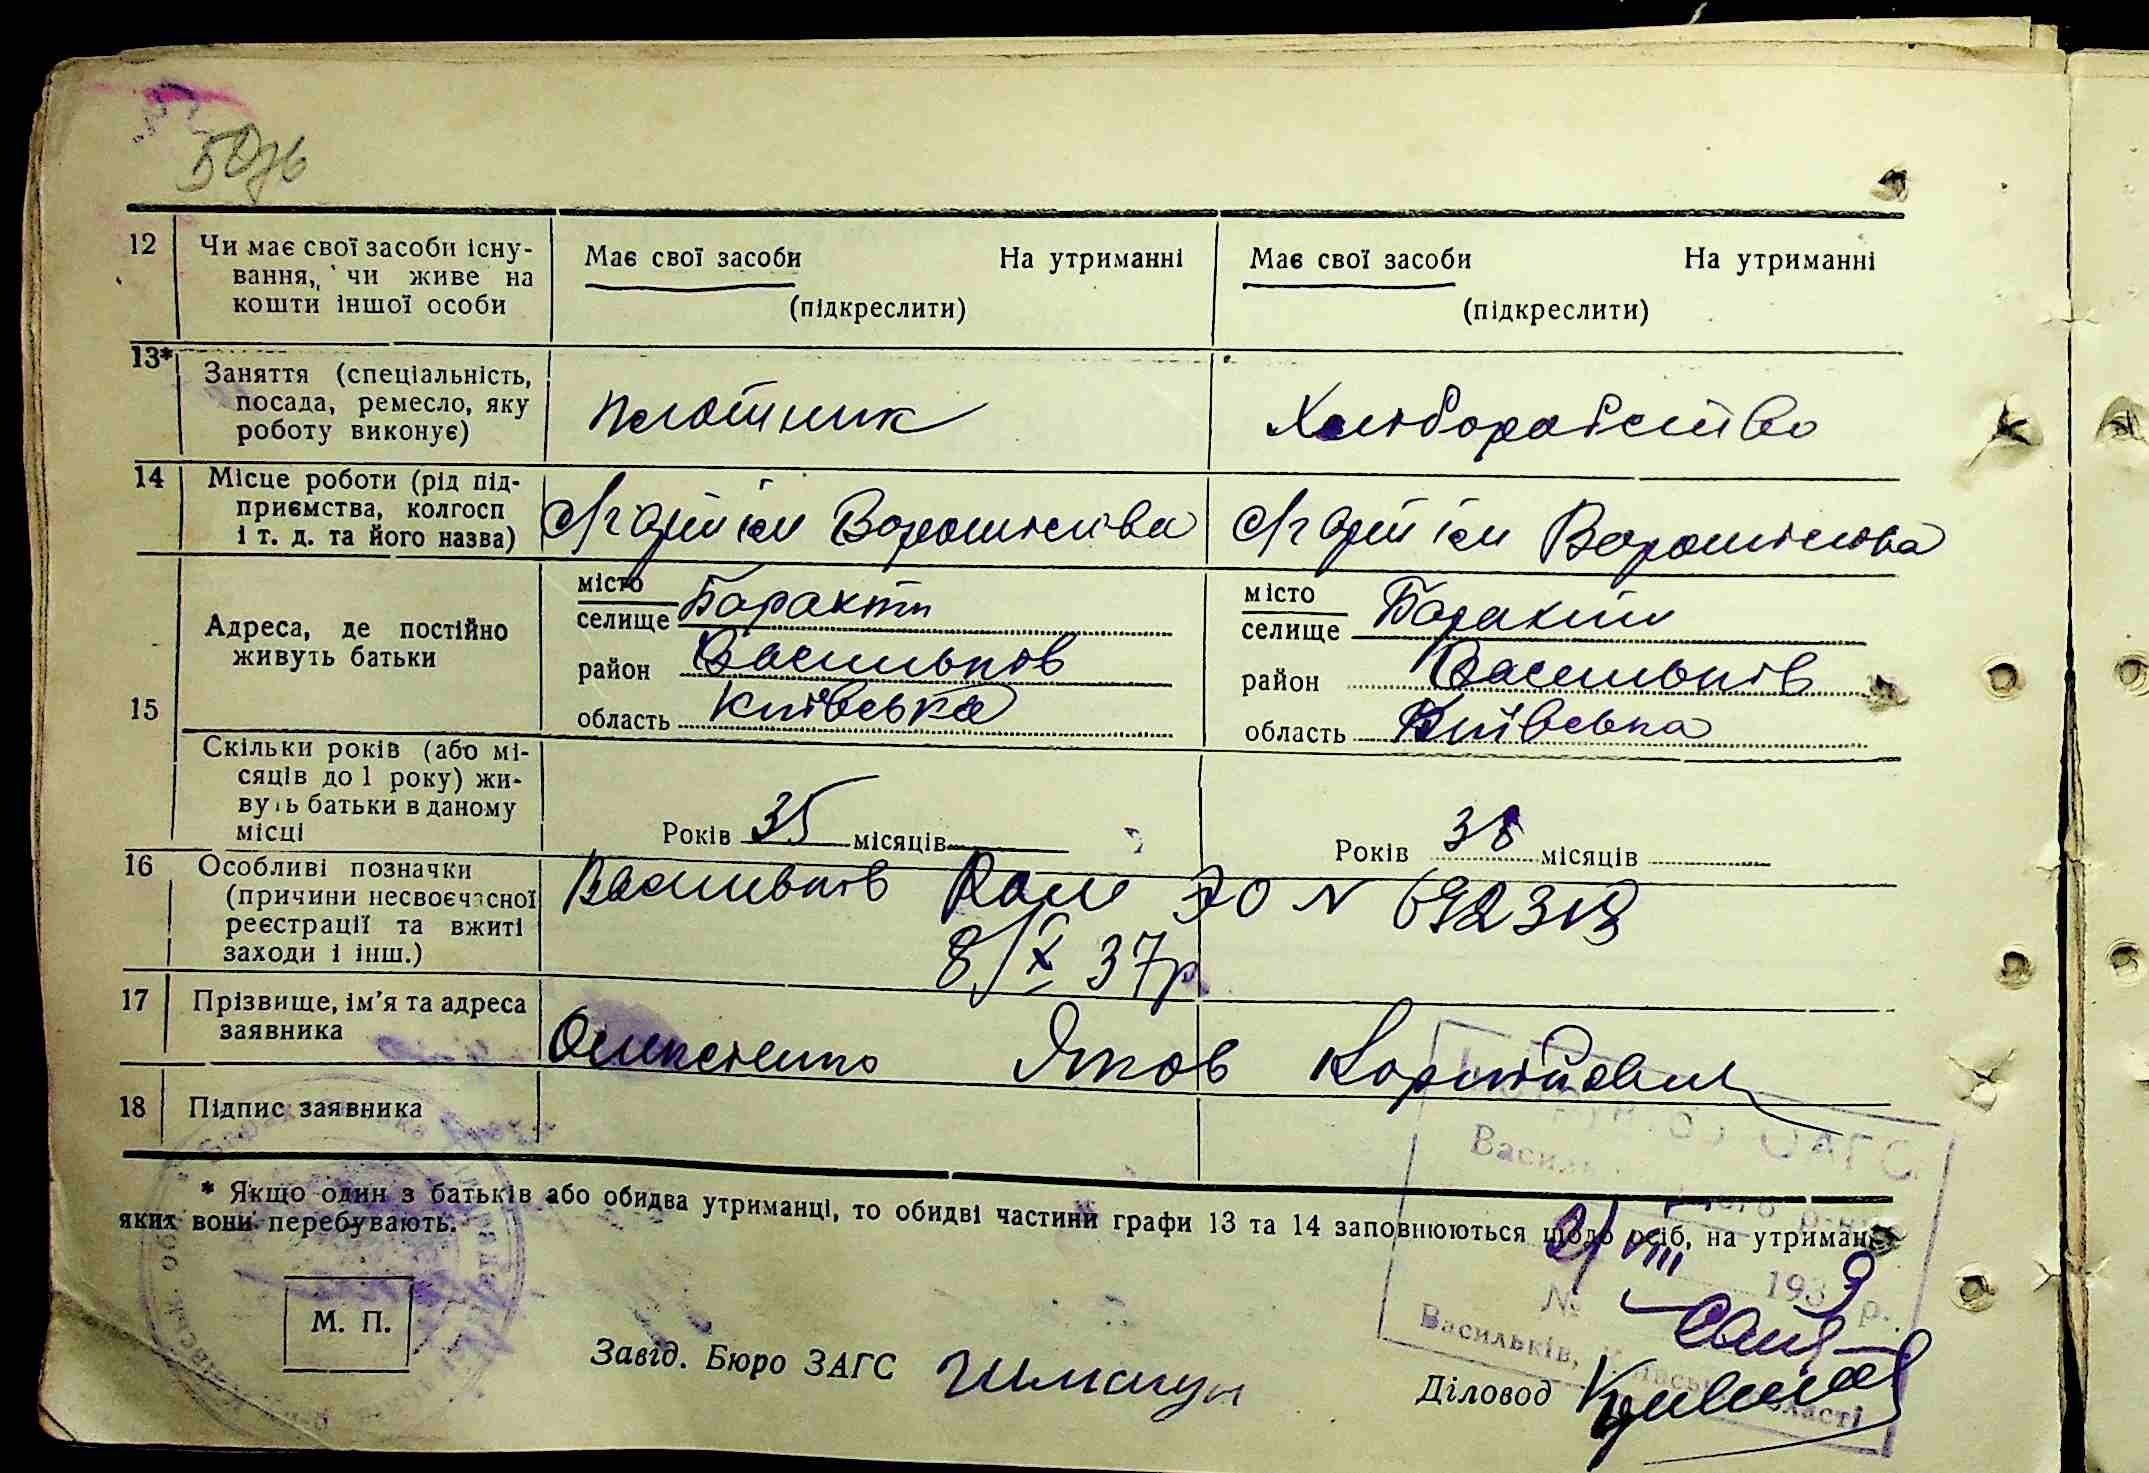 12 Чи має свої засоби існу-
вання, чи живе на
кошти іншої особи
Має свої засоби На утриманні
(підкреслити)
Має свої засоби На утриманні
(підкреслити)
13* Заняття (спеціальність,
посада, ремесло, яку
роботу виконує)
Плотник
Хліборобство
14 Місце роботи (рід під-
приємства, колгосп
і т. д. та його назва)
С/г артіл Ворошилова
С/г артіл Ворошилова
15
Адреса, де постійно
живуть батьки
місто
селище Барахти
район Васильків
область Київська
місто
селище Барахти
район Васильків
область Київська
Скільки років (або мі-
сяців до 1 року) жи-
вуть батьки в даному
місці
Років 35 місяців
Років 38 місяців
16 Особливі позначки
(причини несвоєчасної
реєстрації та вжиті
заходи і інш.)
Васильків N 692313
8/X 37р
17 Прізвище, ім'я та адреса
заявника
Олексієнко Яков Корнійович
18 Підпис заявника
* Якщо один з батьків або обидва утриманці, то обидві частини графи 13 та 14 заповнюються щодо осіб, на утриманні
яких вони перебувають.
ЗАГС
1939 р.
№
Васильків, Київської області
М. П.
Завід. Бюро ЗАГС
Діловод